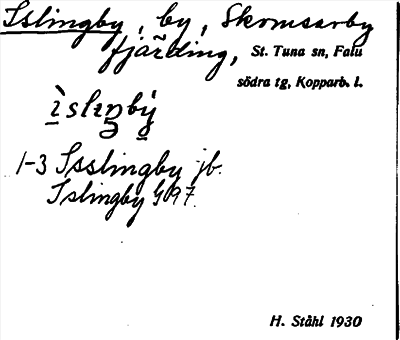 Islingby, by, Skomsarby
fjärding, St. Tuna sn, Falu
södra tg, Kopparb. l.
ìslıŋby̆́
1-3 Isslingby jb.
Islingby G097
H. Ståhl 1930